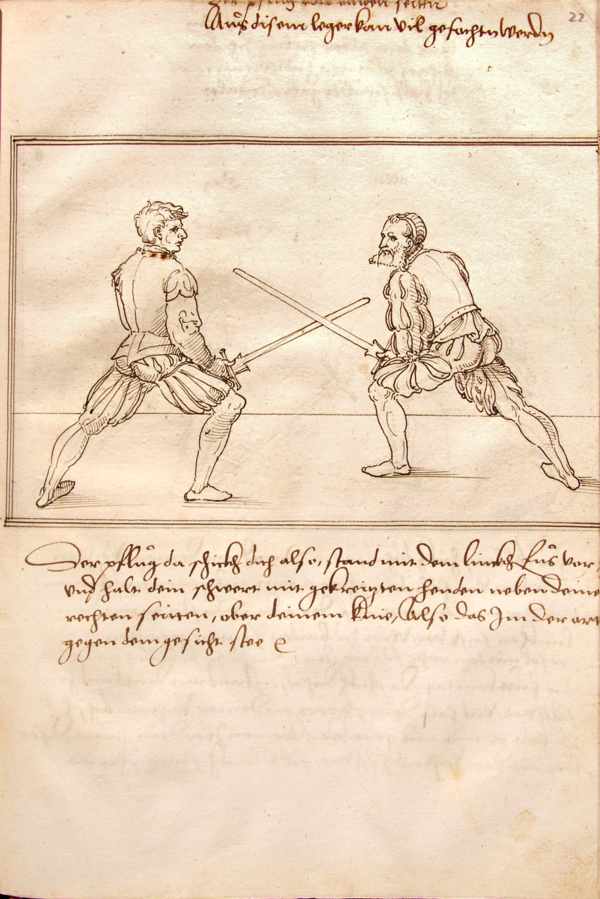 22
Der pflug von baiden seittn
Auß disem leger kan vil gefochtn werdn
Der pflug da schickh dich also, stand mit dem linckh fuß vor,
vnd halt dein schwert mit gekreitzten henden neben deine
rechten seitten, ober deinem knie, Also das Im der ort
gegen dem gesicht stee